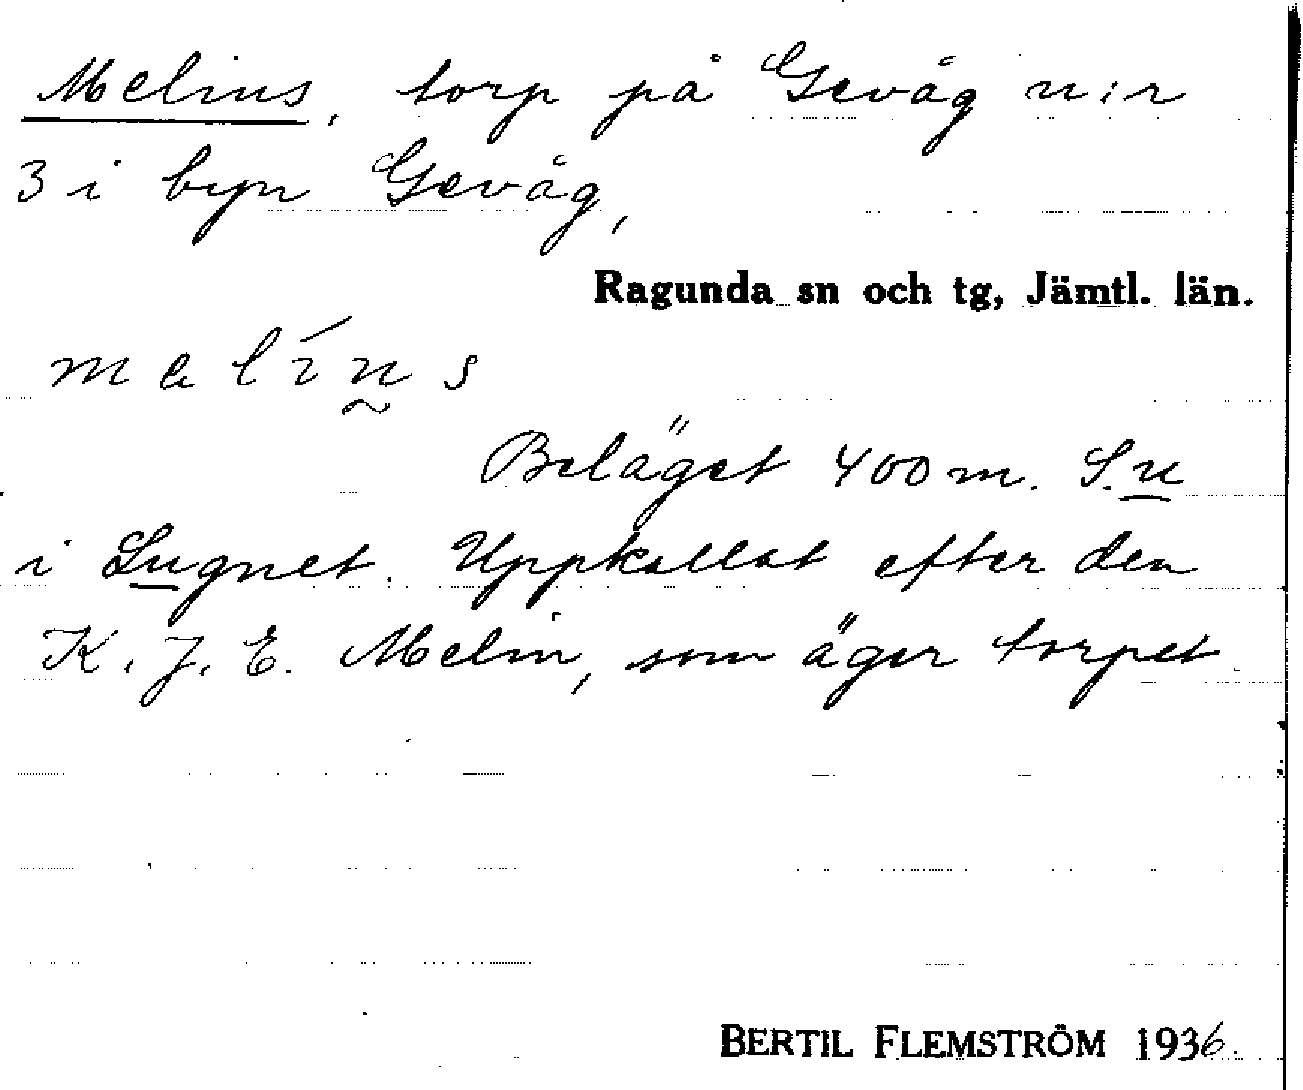 Melins, torp på Gevåg n:r
3 i byn Gevåg,
Ragunda sn och tg, Jämtl. län.
melíns
Beläget 400 m. S.u
i Lugnet. Uppkallat efter den
K. J. E. Melin, som äger torpet.
BERTIL FLEMSTRÖM 1936.